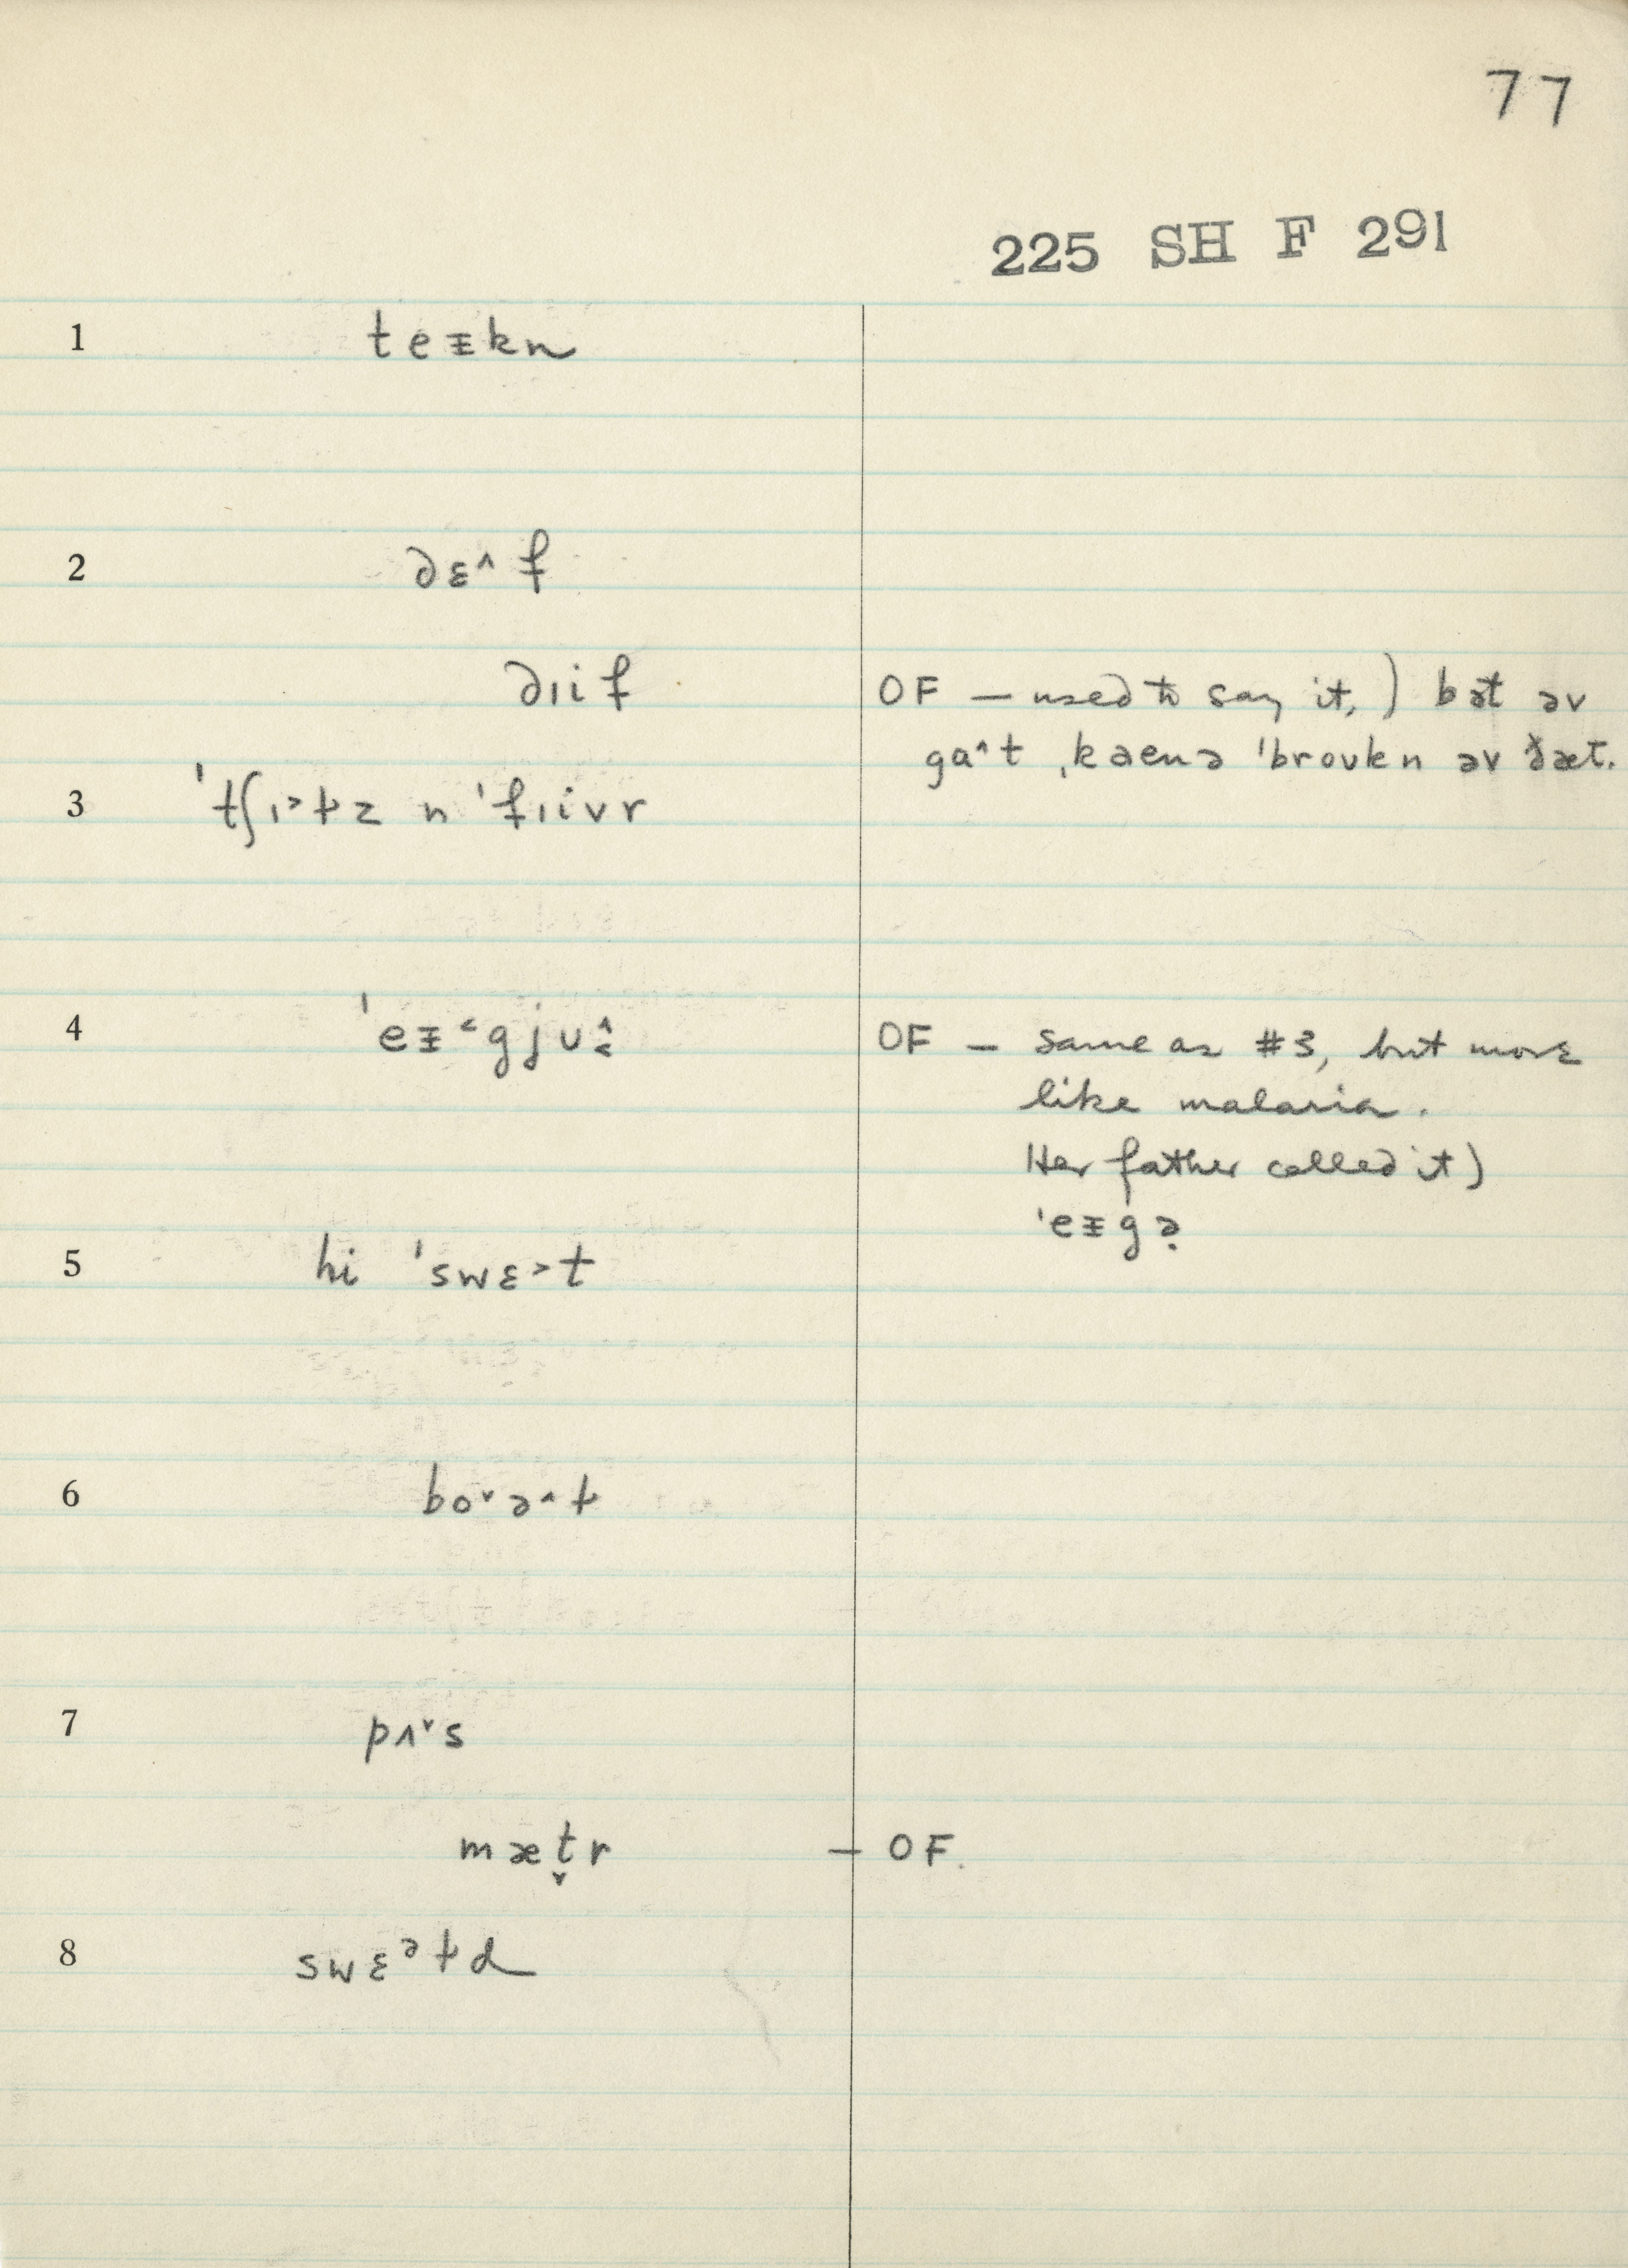 77
225 SH F 291
1 teᵻkn
2 dɛ^f
dɪif OF — used to say it,) bət əv
ga^t ˌkaenə ˈbroʊkn əv ðæt.
3 ˈtʃɪ˃ɫz n ˈfɪivr
4 ˈeᵻ˂gjʊ OF — same as #3, but more
like malaria.
Her father called it)
ˈeᵻgə̣
5 hi ˈswɛ˃t
6 bo˅ə^ɫ
7 pʌ˅s
mæt̬r — OF.
8 swɛᵊɫd